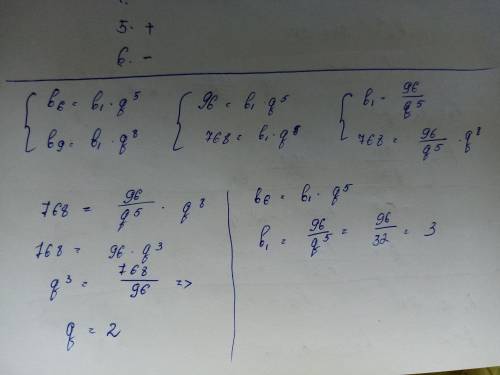 5. +
6. -
b6 = b1 · q^5
b9 = b1 · q^8
96 = b1 · q^5
768 = b1 · q^8
b1 = 96/q^5
768 = 96/q^5 · q^8
768 = 96/q^5 · q^8
768 = 96 · q^3
q^3 = 768/96 =>
q = 2
b6 = b1 · q^5
b1 = 96/q^5 = 96/32 = 3